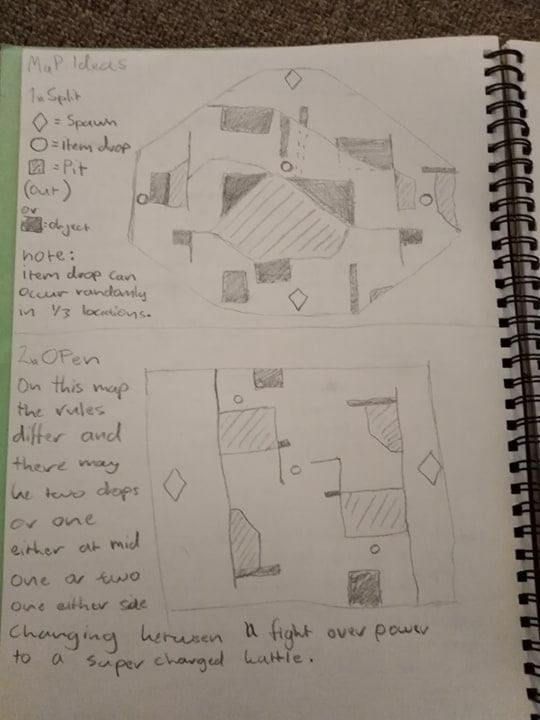 Map Ideas
1x Split
◇ = Spawn
○ = Item drop
▨ = Pit
(out)
or
■ = object
note:
item drop can
occur randomly
in 1/3 locations.
2x Open
On this map
the rules
differ and
there may
be two drops
or one
either at mid
one or two
one either side
Changing between a fight over power
to a super charged battle.